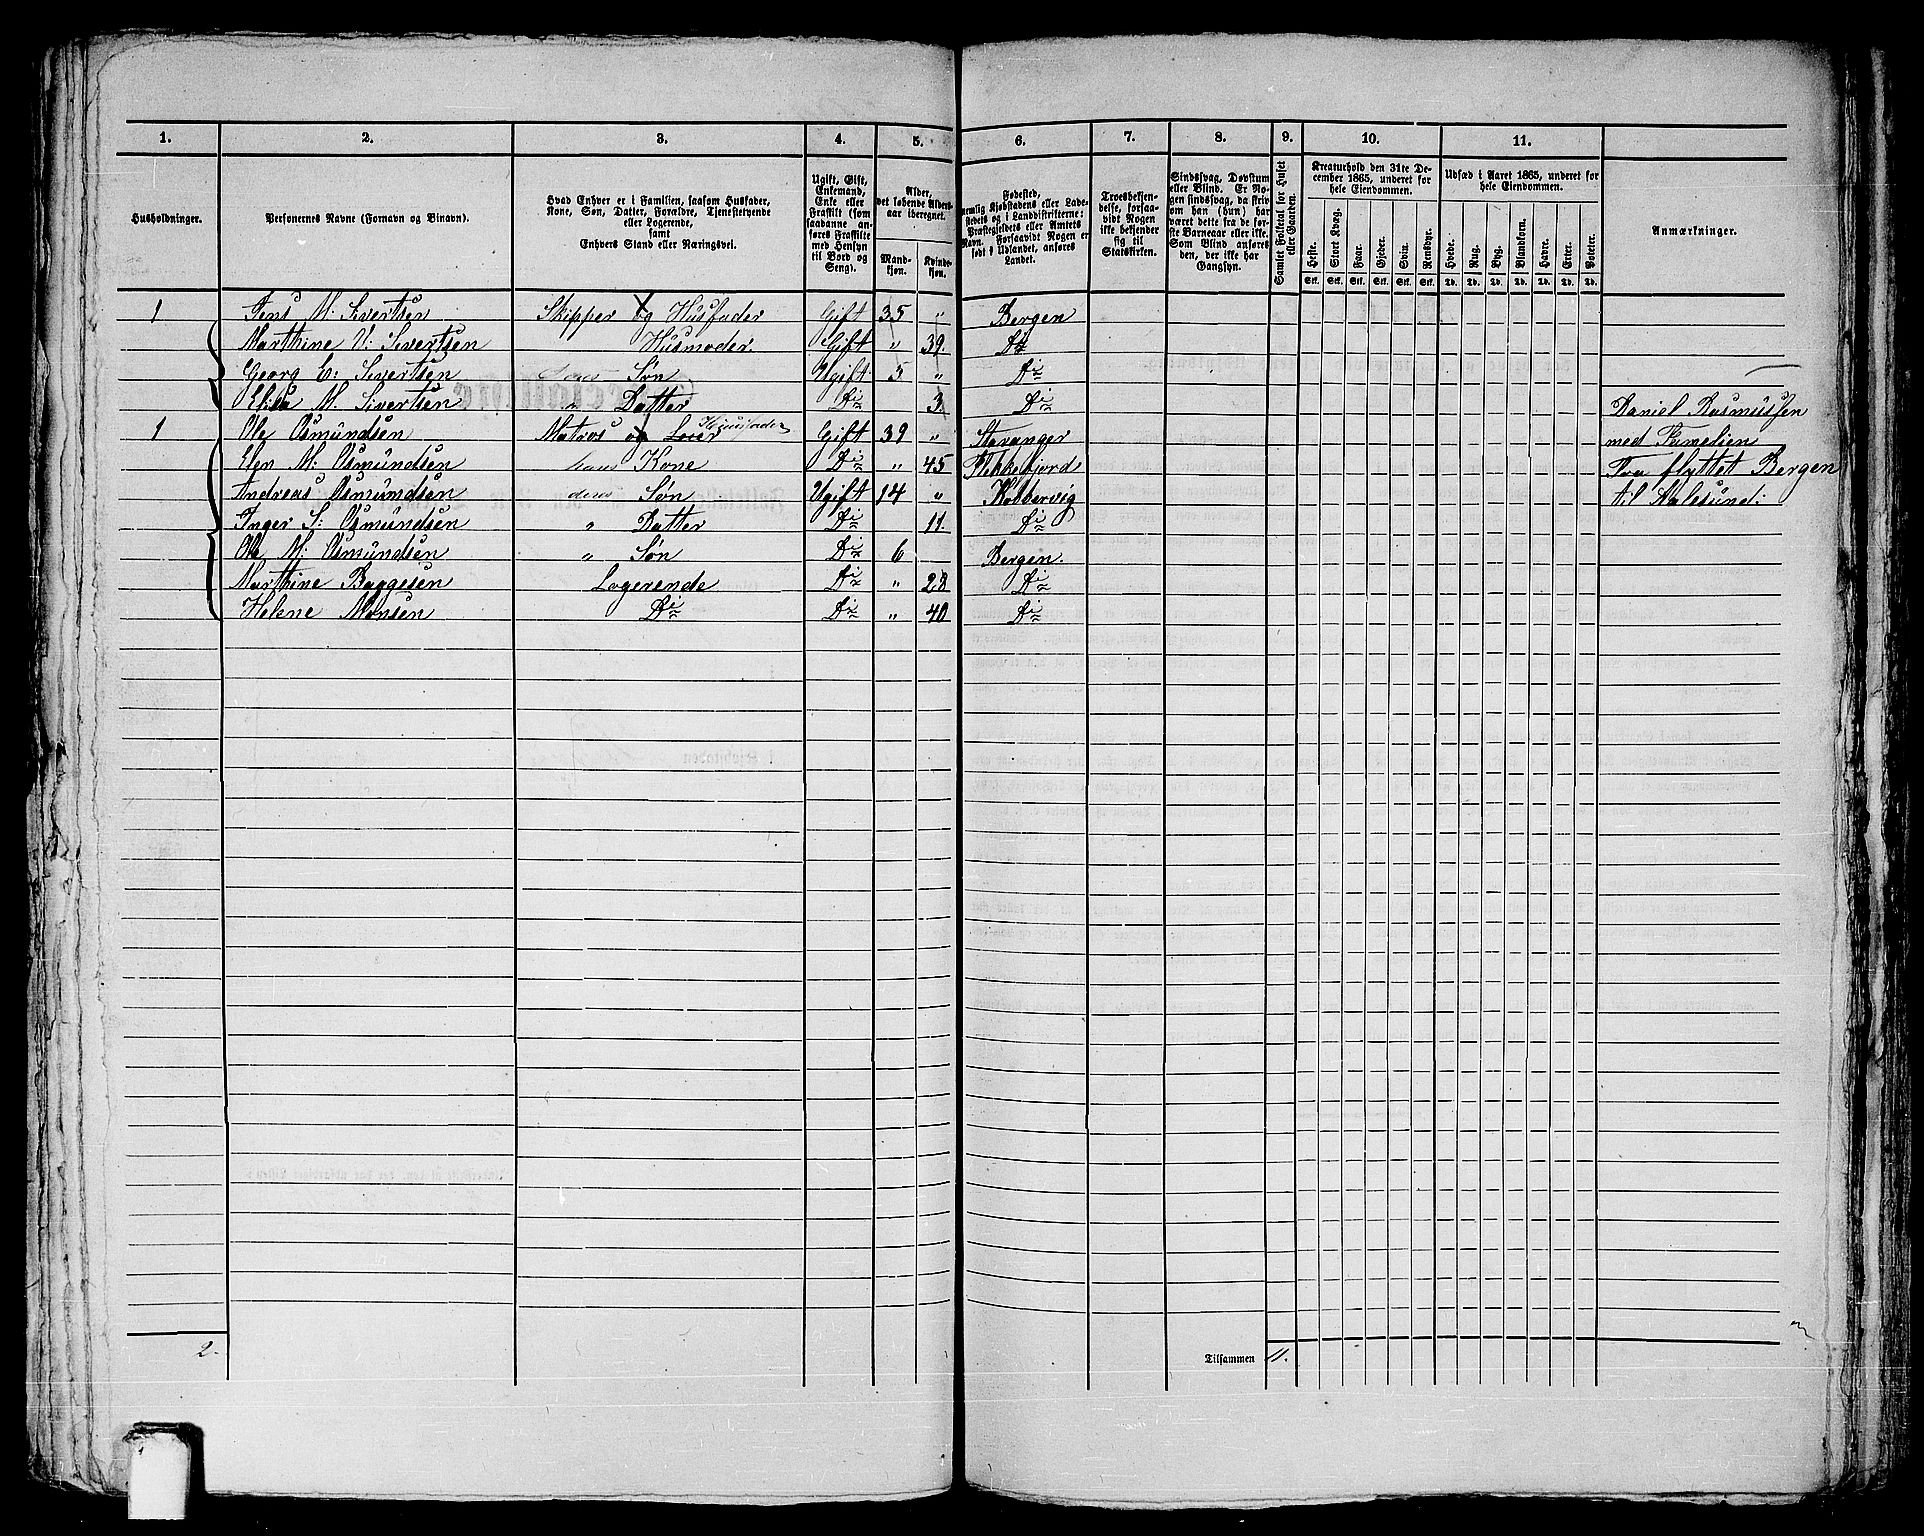 1. 2. 3. 4. 5. 6. 7. 8. 9. 10. 11.
Husholdninger.
Personernes Navne (Fornavn og Binavn).
Hvad Enhver er i Familien, saasom Husfader,
Kone, Søn, Datter, Forældre, Tjenestetyende
eller Logerende,
samt
Enhvers Stand eller Næringsvei.
Ugift, Gift,
Enkemand,
Enke eller
Fraskilt (som
saadanne an-
føres Fraskilte
med Hensyn
til Bord og
Seng).
Alder,
det løbende Alders-
aar iberegnet.
Mand-
kjøn.
Kvinde-
kjøn.
Fødested,
nemlig Kjøbstadens eller Lade-
stedets og i Landdistrikterne:
Præstegjeldets eller Amtets
Navn. Forsaavidt Nogen er
født i Udlandet, anføres
Landet.
Troesbekjen-
delse, forsaa-
vidt Nogen
ikke bekjender
sig til
Statskirken.
Sindssvag, Døvstum
eller Blind. Er No-
gen sindssvag, da skriv
om han (hun) har
været dette fra de før-
ste Barneaar eller ikke.
Som Blind anføres
den, der ikke har
Gangsyn.
Samlet Folketal for Huset
eller Gaarden.
Kreaturhold den 31te De-
cember 1865, underet for
hele Eiendommen.
Heste. Stort Kvæg. Faar. Gjeder. Svin. Rensdyr.
Stk. Stk. Stk. Stk. Stk. Stk.
Udsæd i Aaret 1865, underet for
hele Eiendommen.
Hvede. Rug. Byg. Blandkorn. Havre. Erter. Poteter.
Td. Td. Td. Td. Td. Td. Td.
Anmærkninger.
1 Jens M. Sivertsen Skipper og Husfader Gift 35 „ Bergen
Marthine V: Sivertsen Husmoder. Gift „ 39. Do
Georg E: Sivertsen deres Søn Ugift 5 „ Do
Elisa M. Sivertsen „ Datter Do 3 Do
1 Ole Osmundsen Matros og Loier Huusfader Gift 39 „ Stavanger
Elen M: Osmundsen hans Kone Do „ 45 Flekkefjord
Andreas Osmundsen deres Søn Ugift 14 „ Kobbervig
Inger S: Osmundsen „ Datter Do 11. Do
Ole M: Osmundsen „ Søn Do 6 Bergen.
Marthine Baggesen Logerende Do „ 28 Do
Helene Monsen Do Do „ 40 Do
Daniel Rasmussen
med Familien
Fra flyttet Bergen
til Aalesund:
2.
Tilsammen 11.